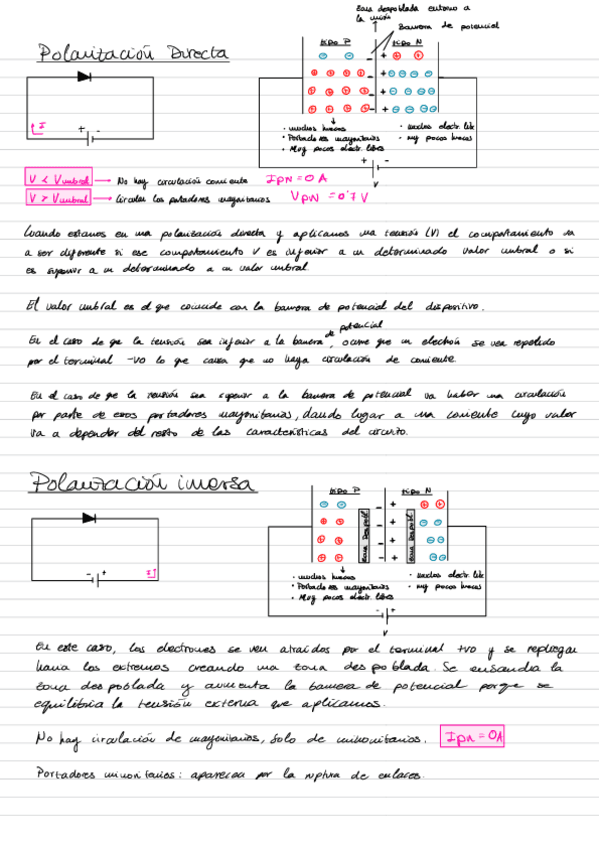 zona despoblada entorno a
la unión
Barrera de potencial
Polarización Directa
tipo P
tipo N
I
+ -
· muchos huecos
· Portadores mayoritarios
· Muy pocos electr. libres
· muchos electr. libr
· muy pocos huecos
+ -
V
V < Vumbral → No hay circulación corriente IPN = 0 A
V > Vumbral → Circulan los portadores mayoritarios VPN = 0'7 V
Cuando estamos en una polarización directa y aplicamos una tensión (V) el comportamiento va
a ser diferente si ese comportamiento V es inferior a un determinado valor umbral o si
es superior a un determinado a un valor umbral.
El valor umbral es el que coincide con la barrera de potencial del dispositivo.
En el caso de que la tensión sea inferior a la barrera de potencial, ocurre que un electrón se ven repelido
por el terminal -vo lo que causa que no haya circulación de corriente.
En el caso de que la tensión sea superior a la barrera de potencial va haber una circulación
por parte de esos portadores mayoritarios, dando lugar a una corriente cuyo valor
va a depender del resto de las características del circuito.
Polarización inversa
tipo P
tipo N
zona despobl
zona despobl
I
- +
· muchos huecos
· Portadores mayoritarios
· Muy pocos electr. libres
· muchos electr. libr
· muy pocos huecos
- +
V
En este caso, los electrones se ven atraídos por el terminal +vo y se repliegan
hacia los extremos creando una zona despoblada. Se ensancha la
zona despoblada y aumenta la barrera de potencial porque se
equilibria la tensión externa que aplicamos.
No hay circulación de mayoritarios, solo de minoritarios. IPN = 0A
Portadores minoritarios: aparecen por la ruptura de enlaces.